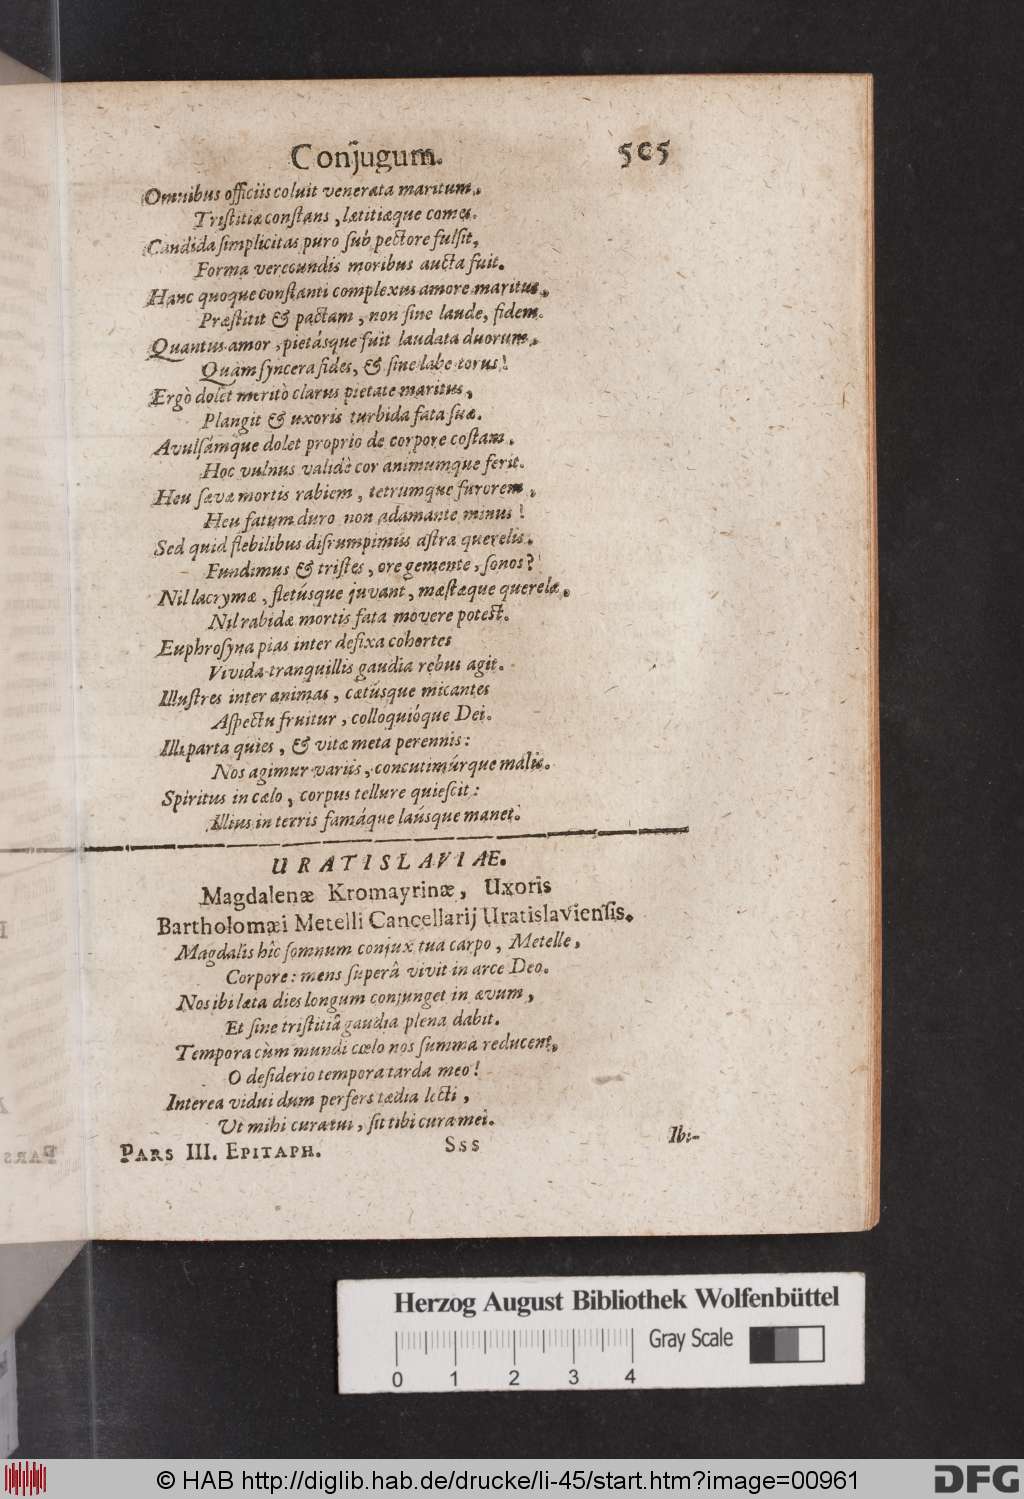 Conjugum. 505
Omnibus officiis coluit venerata maritum,
Tristitiæ constans, lætitiæque comes.
Candida simplicitas puro sub pectore fulsit,
Forma verecundis moribus aucta fuit.
Hanc quoque constanti complexus amore maritus,
Præstitit & pactam, non sine laude, fidem.
Quantus amor, pietásque fuit laudata duorum,
Quàm syncera fides, & sine labe torus!
Ergò dolet meritò clarus pietate maritus,
Plangit & uxoris turbida fata suæ.
Avulsámque dolet proprio de corpore costam,
Hoc vulnus validè cor animumque ferit.
Heu sævæ mortis rabiem, tetrumque furorem,
Heu fatum duro non adamante minus!
Sed quid flebilibus disrumpimus astra querelis,
Fundimus & tristes, ore gemente, sonos?
Nil lacrymæ, fletúsque juvant, mæstæque querelæ,
Nil rabidæ mortis fata movere potest.
Euphrosyna pias inter defixa cohortes
Vivida tranquillis gaudia rebus agit.
Illustres inter animas, cætúsque micantes
Aspectu fruitur, colloquióque Dei.
Illi parta quies, & vitæ meta perennis:
Nos agimur variis, concutimúrque malis.
Spiritus in cælo, corpus tellure quiescit:
Illius in terris famáque laúsque manet.
URATISLAVIAE.
Magdalenæ Kromayrinæ, Uxoris
Bartholomæi Metelli Cancellarij Uratislaviensis.
Magdalis hîc somnum conjux tua carpo, Metelle,
Corpore: mens superâ vivit in arce Deo.
Nos ibi læta dies longum conjunget in ævum,
Et sine tristitiâ gaudia plena dabit.
Tempora cùm mundi cælo nos summa reducent,
O desiderio tempora tarda meo!
Interea vidui dum perfers tædia lecti,
Ut mihi cura tui, sit tibi cura mei.
PARS III. EPITAPH. Sss Ibi-
Herzog August Bibliothek Wolfenbüttel
Gray Scale
0 1 2 3 4
© HAB http://diglib.hab.de/drucke/li-45/start.htm?image=00961
DFG